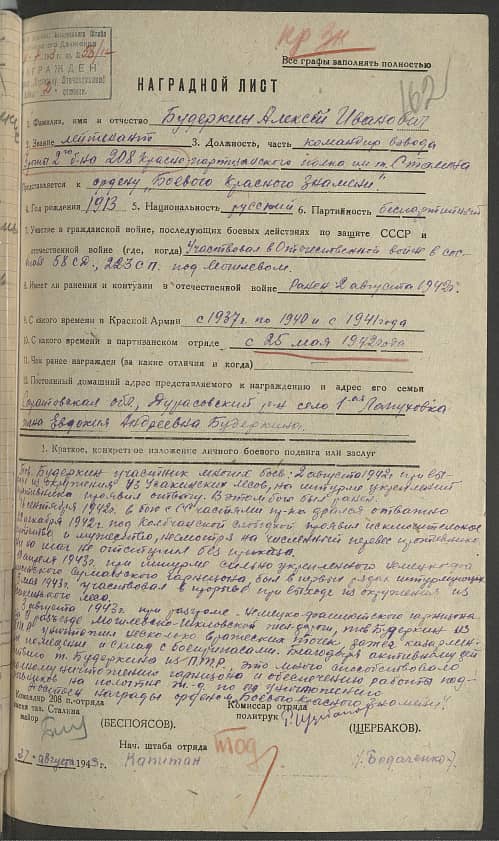 пр Зн
Все графы заполнять полностью
НАГРАЖДЕН
162
НАГРАДНОЙ ЛИСТ
1. Фамилия, имя и отчество Будеркин Алексей Иванович
2. Звание лейтенант 3. Должность, часть командир взвода
2го б-на 208 Красно-партизанского полка им т. Сталина
Представляется к ордену "Боевого Красного Знамени".
4. Год рождения 1913 5. Национальность русский 6. Партийность беспартийный
7. Участие в гражданской войне, последующих боевых действиях по защите СССР и
отечественной войне (где, когда) Участвовал в Отечественной войне в сос-
58 СД, 223 СП. под Могилевом.
8. Имеет ли ранения и контузии в отечественной войне Ранен 2 августа 1942г.
9. С какого времени в Красной Армии с 1937г. по 1940 и с 1941 года
10. С какого времени в партизанском отряде с 25 мая 1942 года
11. Чем ранее награжден (за какие отличия и когда)
12. Постоянный домашний адрес представляемого к награждению и адрес его семьи
Саратовская обл, р-н село 1-ая
Евдокия Андреевна Будеркина.
1. Краткое, конкретное изложение личного боевого подвига или заслуг
Тов. Будеркин участник многих боев: 2 августа 1942г. при вы-
из окружения из лесов, на штурме укреплений
противника проявил отвагу. В этом бою был ранен.
сентября 1942г. в бою с СС частями пр-ка дрался отважно
декабря 1942г. под слободкой проявил исключительное
и мужество, несмотря на численный перевес противника,
ни на шаг не отступил без приказа.
апреля 1943г. при штурме сильно укрепленного немецко-фа-
гарнизона, был в первых рядах штурмующих.
мая 1943г. участвовал в прорыве при выходе из окружения из
леса.
3 августа 1943г. при разгроме немецко-фашистского гарнизона
на разъезде Могилевско-Шкловской жел-дороги, тов Будеркин из
уничтожил несколько вражеских точек, зажег
помещение и склад с боеприпасами. Благодаря активному
т. Будеркина из П.Т.Р., это много способствовало
уничтожению гарнизона и обеспечению работы под-
на полотне ж-д. по ее уничтожению.
награды ордена "Боевого Красного Знамени".
Командир 208 п.-отряда
имени тов. Сталина
майор (БЕСПОЯСОВ)
Комиссар отряда
политрук (ЩЕРБАКОВ)
Нач. штаба отряда
Капитан
августа 1943г.